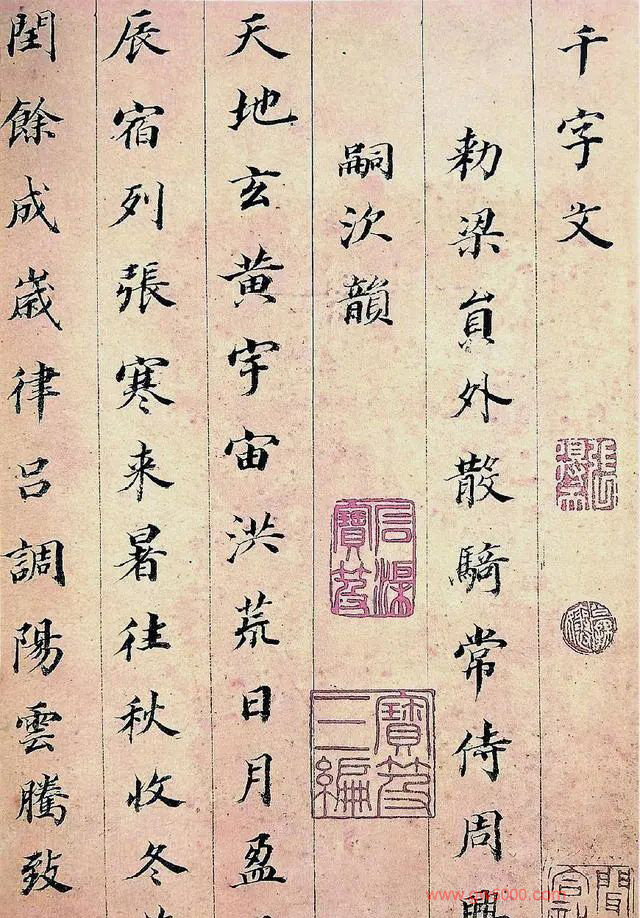 千字文
勅梁貟外散騎常侍周興
嗣次韻
石渠寶笈
寶笈三編
天地玄黄宇宙洪荒日月盈
辰宿列張寒来暑往秋收冬
閏餘成歲律吕調陽雲騰致